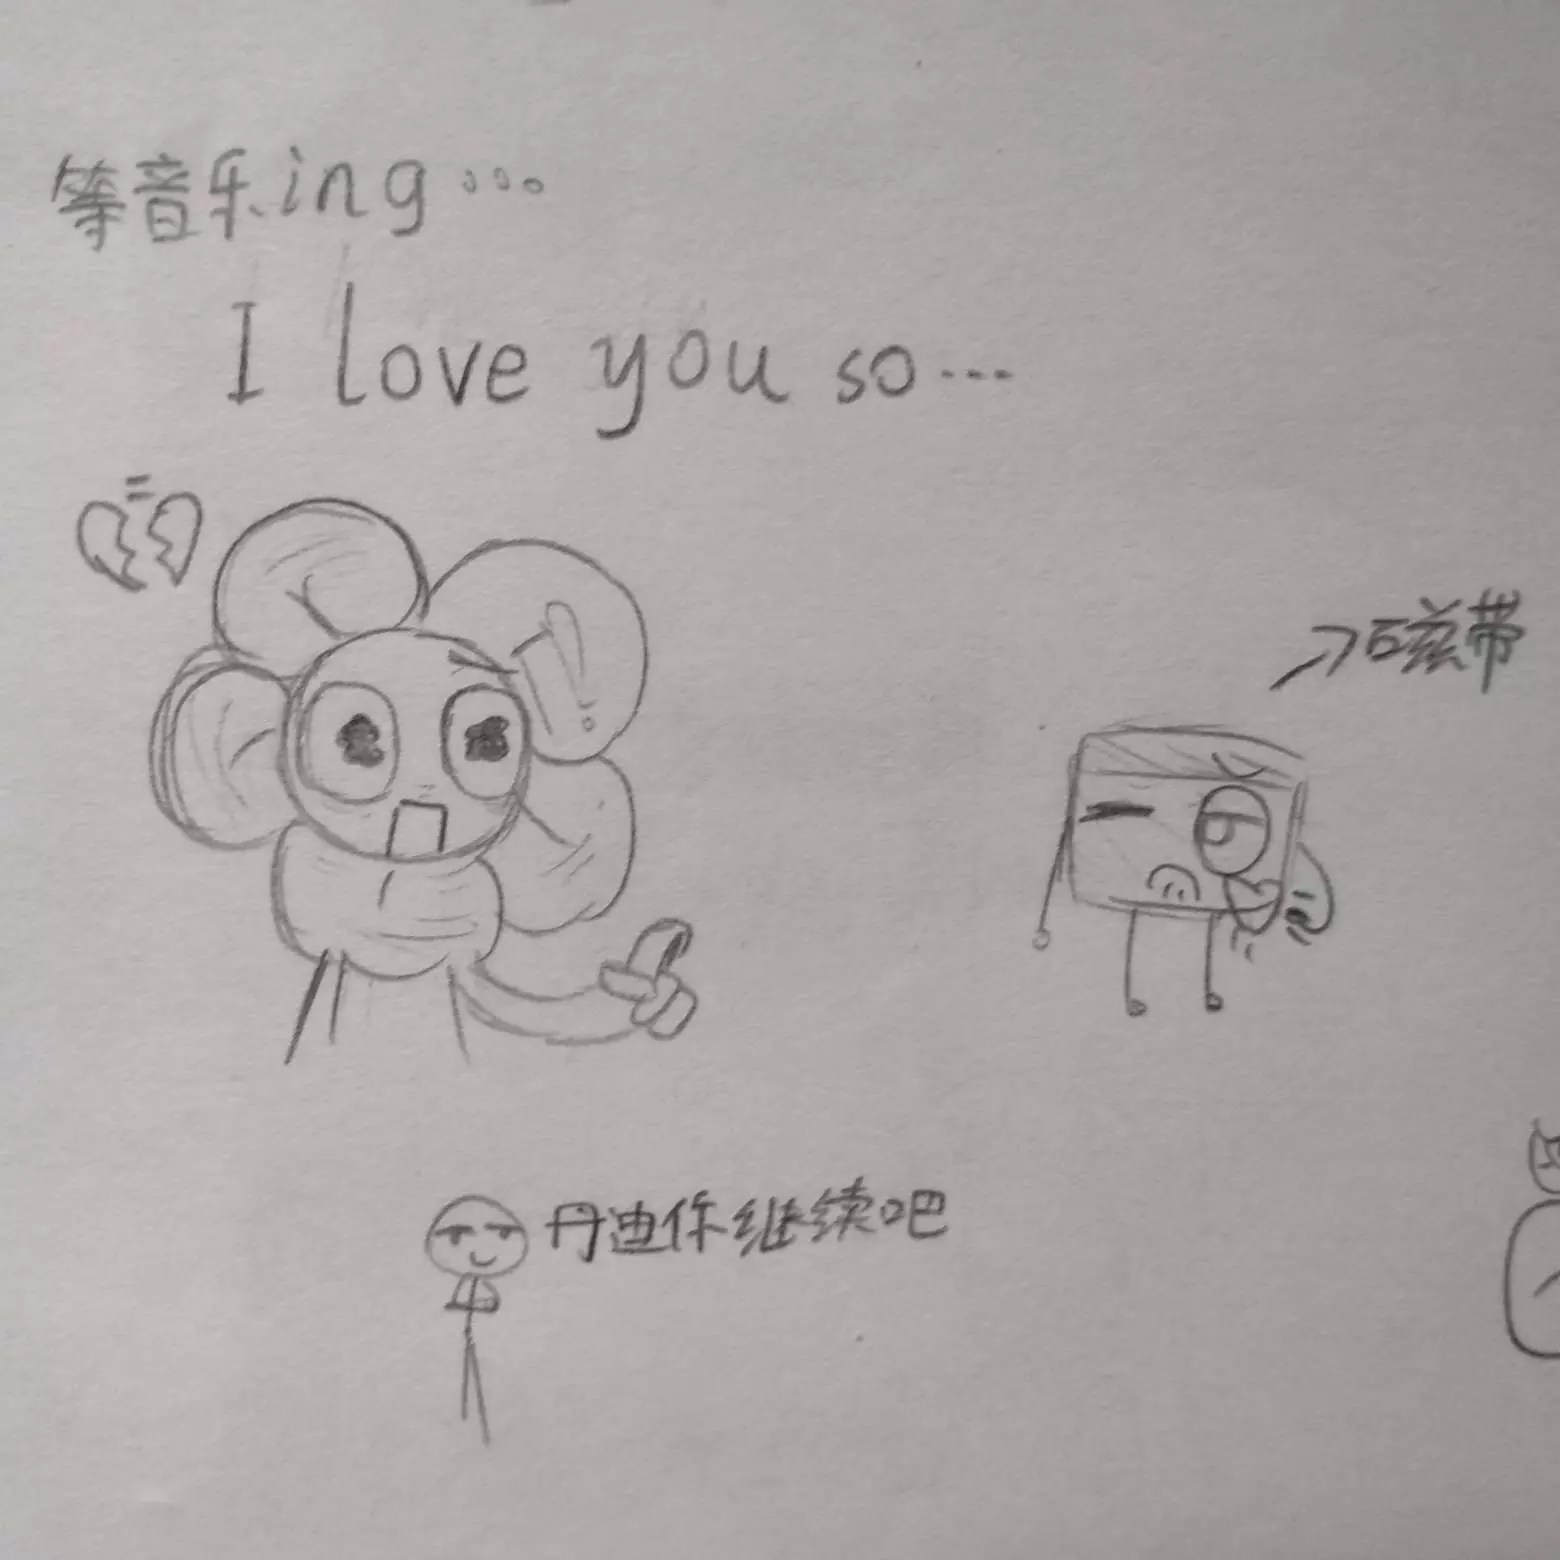 等音乐ing...
I love you so...
磁带
丹迪你继续吧